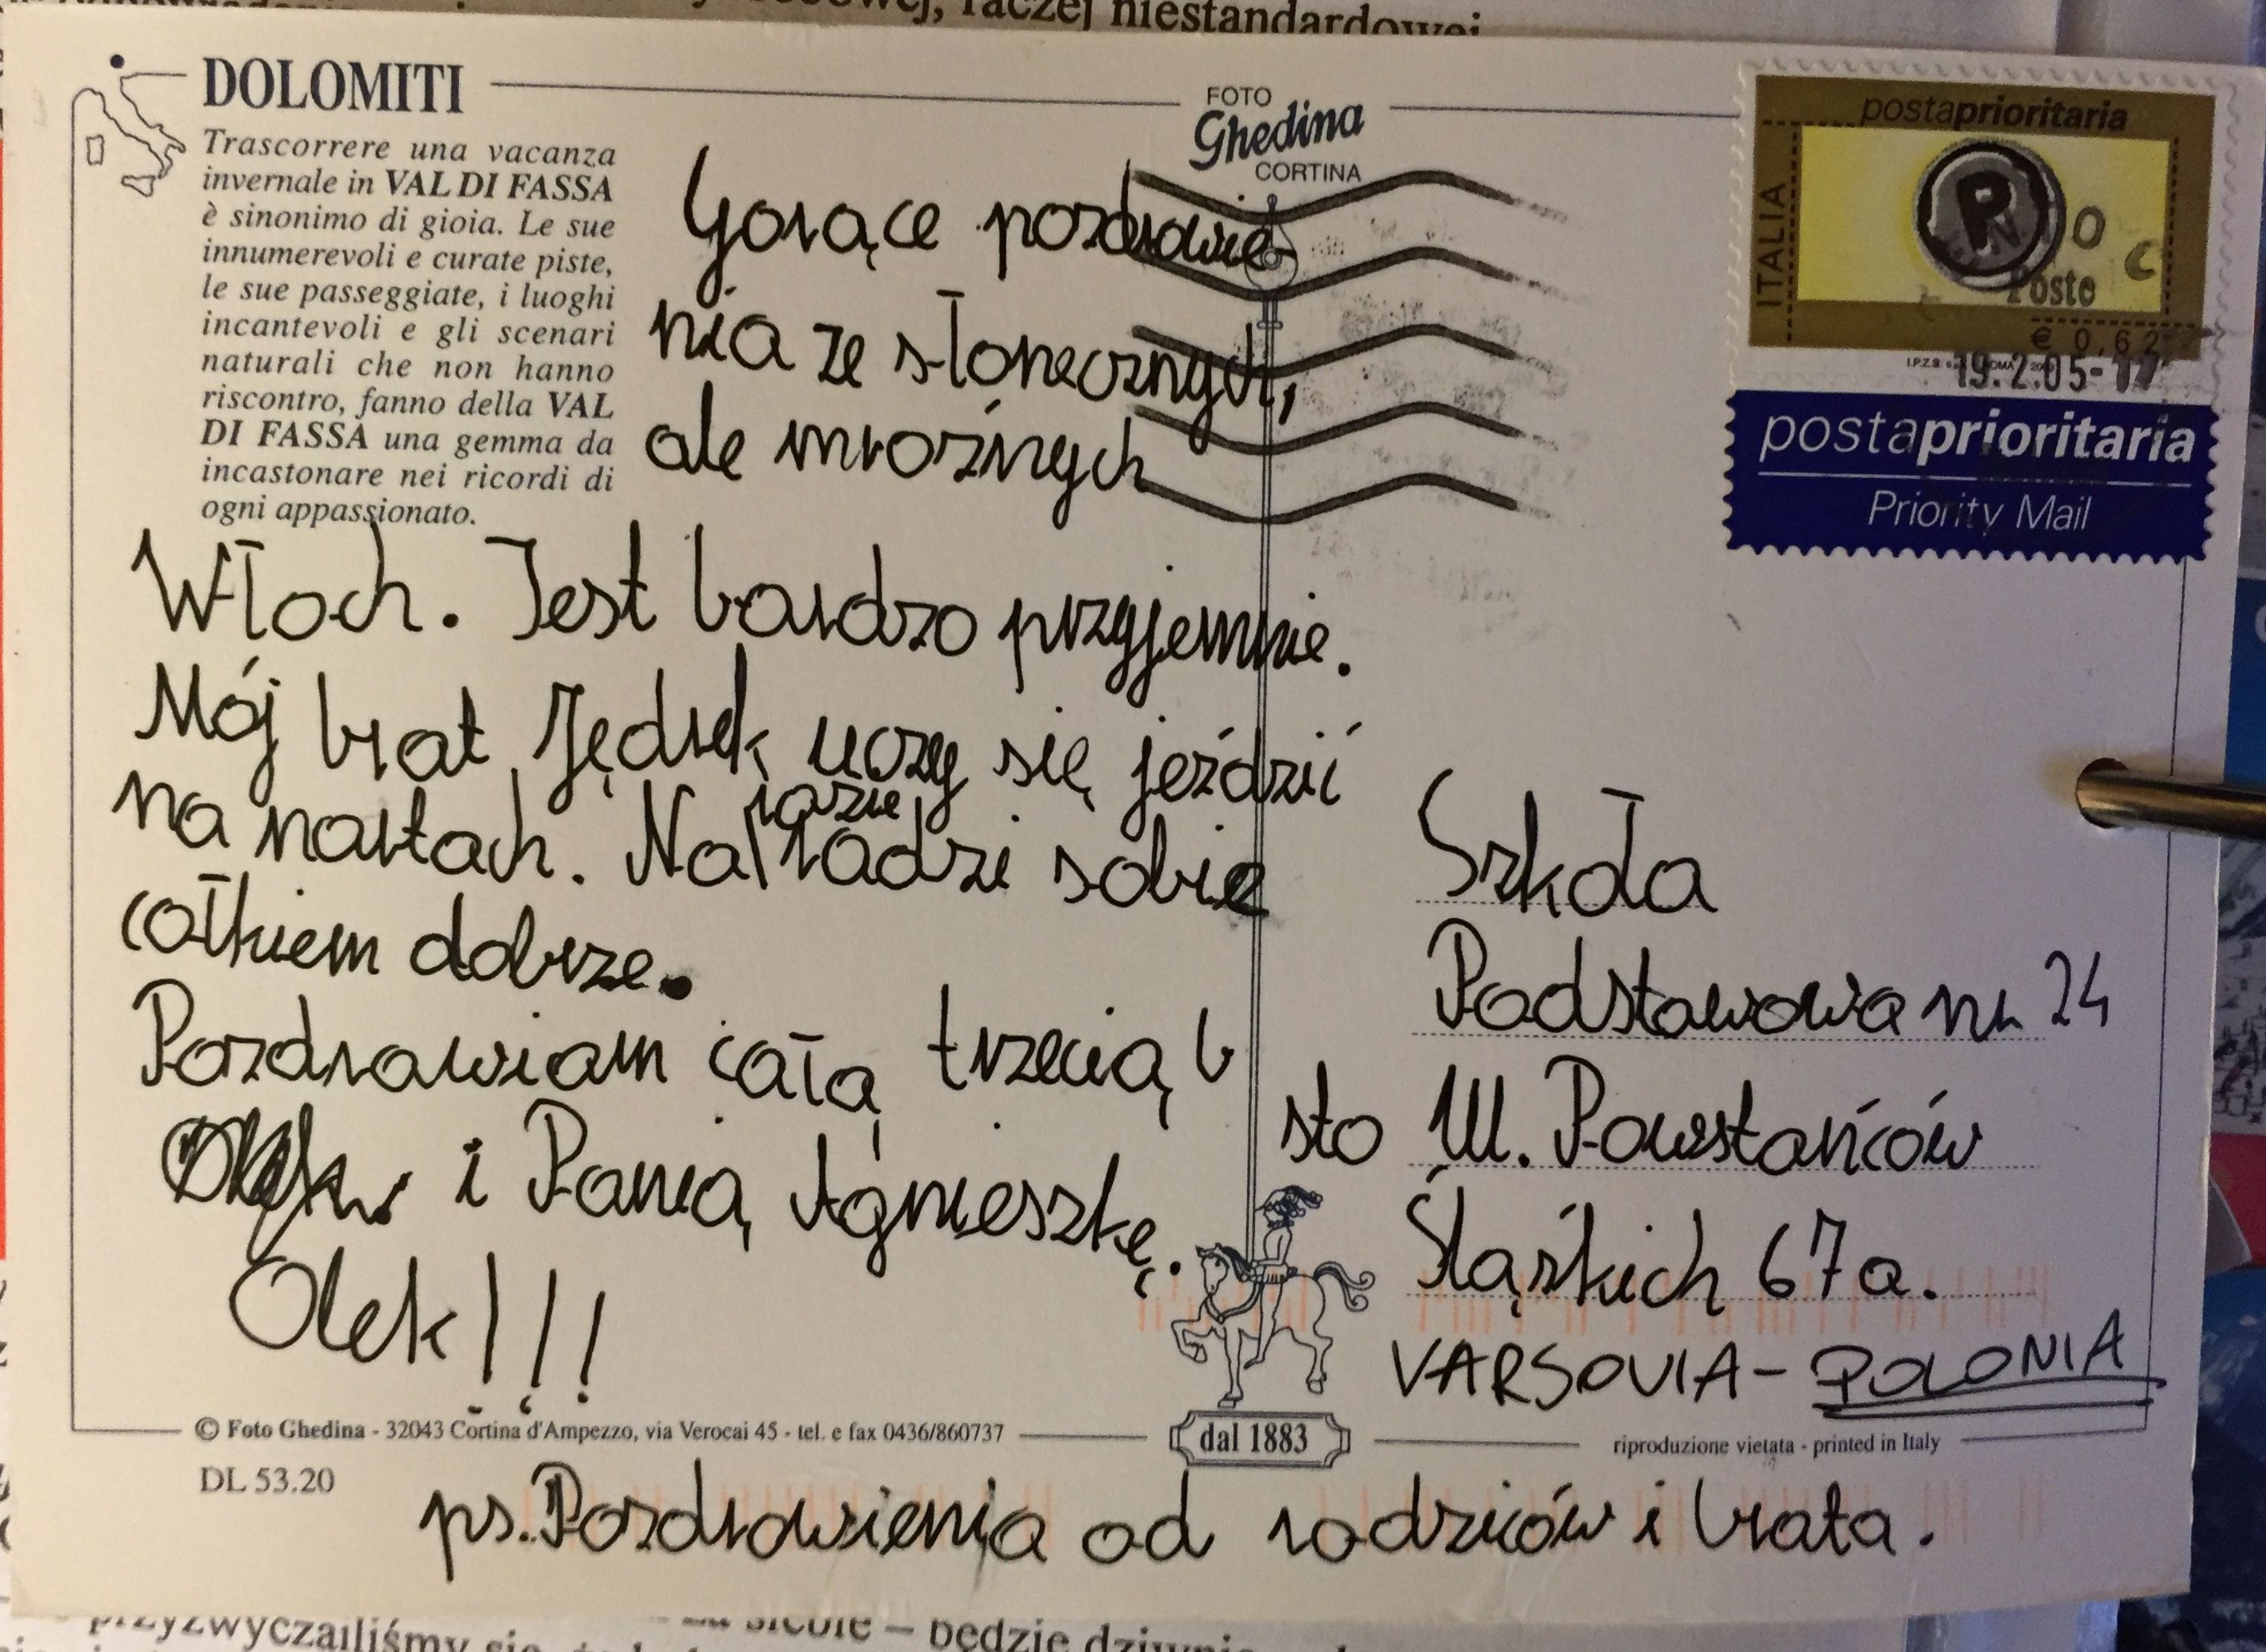 raczej niestandardowej
DOLOMITI
Trascorrere una vacanza
invernale in VAL DI FASSA
è sinonimo di gioia. Le sue
innumerevoli e curate piste,
le sue passeggiate, i luoghi
incantevoli e gli scenari
naturali che non hanno
riscontro, fanno della VAL
DI FASSA una gemma da
incastonare nei ricordi di
ogni appassionato.
FOTO
Ghedina
CORTINA
Gorące pozdrowie-
nia ze słonecznych,
ale mroźnych
Włoch. Jest bardzo przyjemnie.
Mój brat Jędrek uczy się jeździć
na nartach. Na razie radzi sobie
całkiem dobrze.
Pozdrawiam całą trzecią b
i Panią Agnieszkę.
Olek!!!
postaprioritaria
ITALIA
P
Poste
€ 0,62
19.2.05-17
postaprioritaria
Priority Mail
Szkoła
Podstawowa nr 24
sto Ul. Powstańców
Śląskich 67a.
VARSOVIA - POLONIA
© Foto Ghedina - 32043 Cortina d'Ampezzo, via Verocai 45 - tel. e fax 0436/860737
dal 1883
riproduzione vietata - printed in Italy
DL 53.20
ps. Pozdrowienia od rodziców i brata.
przyzwyczailiśmy się
– będzie